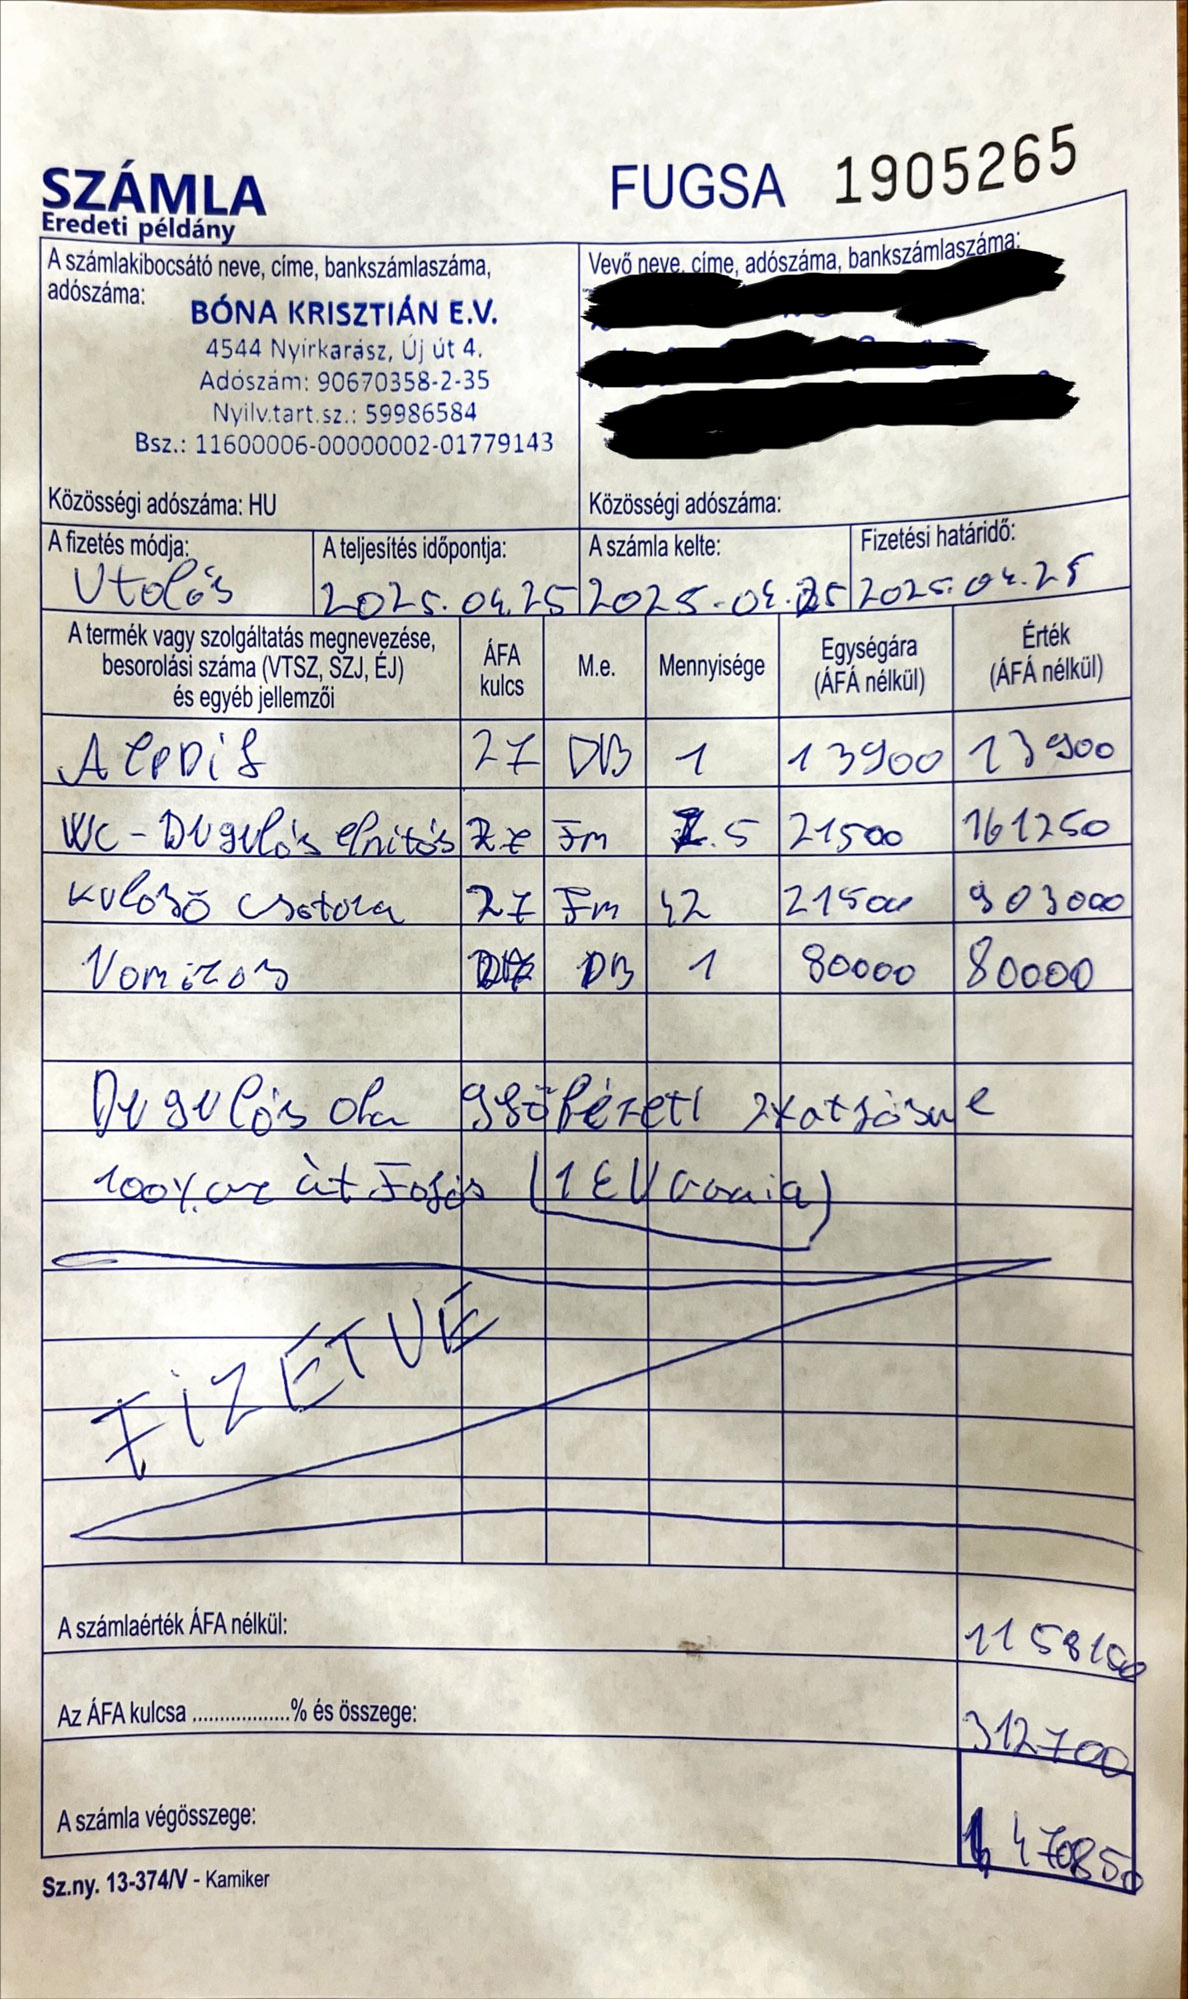 SZÁMLA
Eredeti példány
FUGSA 1905265
A számlakibocsátó neve, címe, bankszámlaszáma,
adószáma:
BÓNA KRISZTIÁN E.V.
4544 Nyírkarász, Új út 4.
Adószám: 90670358-2-35
Nyilv.tart.sz.: 59986584
Bsz.: 11600006-00000002-01779143
Közösségi adószáma: HU
Vevő neve, címe, adószáma, bankszámlaszáma:
Közösségi adószáma:
A fizetés módja:
Utolás
A teljesítés időpontja:
2025.04.25
A számla kelte:
2025.04.25
Fizetési határidő:
2025.04.25
A termék vagy szolgáltatás megnevezése,
besorolási száma (VTSZ, SZJ, ÉJ)
és egyéb jellemzői
ÁFA
kulcs
M.e.
Mennyisége
Egységára
(ÁFA nélkül)
Érték
(ÁFA nélkül)
Alpdíj 27 DB 1 13900 13900
WC-Dugulás elhitás 27 Fm 7.5 21500 161250
Kulső csatorna 27 Fm 42 21500 903000
DB 1 80000 80000
Dugulás oka
100%
FIZETVE
A számlaérték ÁFA nélkül: 1158150
Az ÁFA kulcsa ..................% és összege: 312700
A számla végösszege: 1470850
Sz.ny. 13-374/V - Kamiker